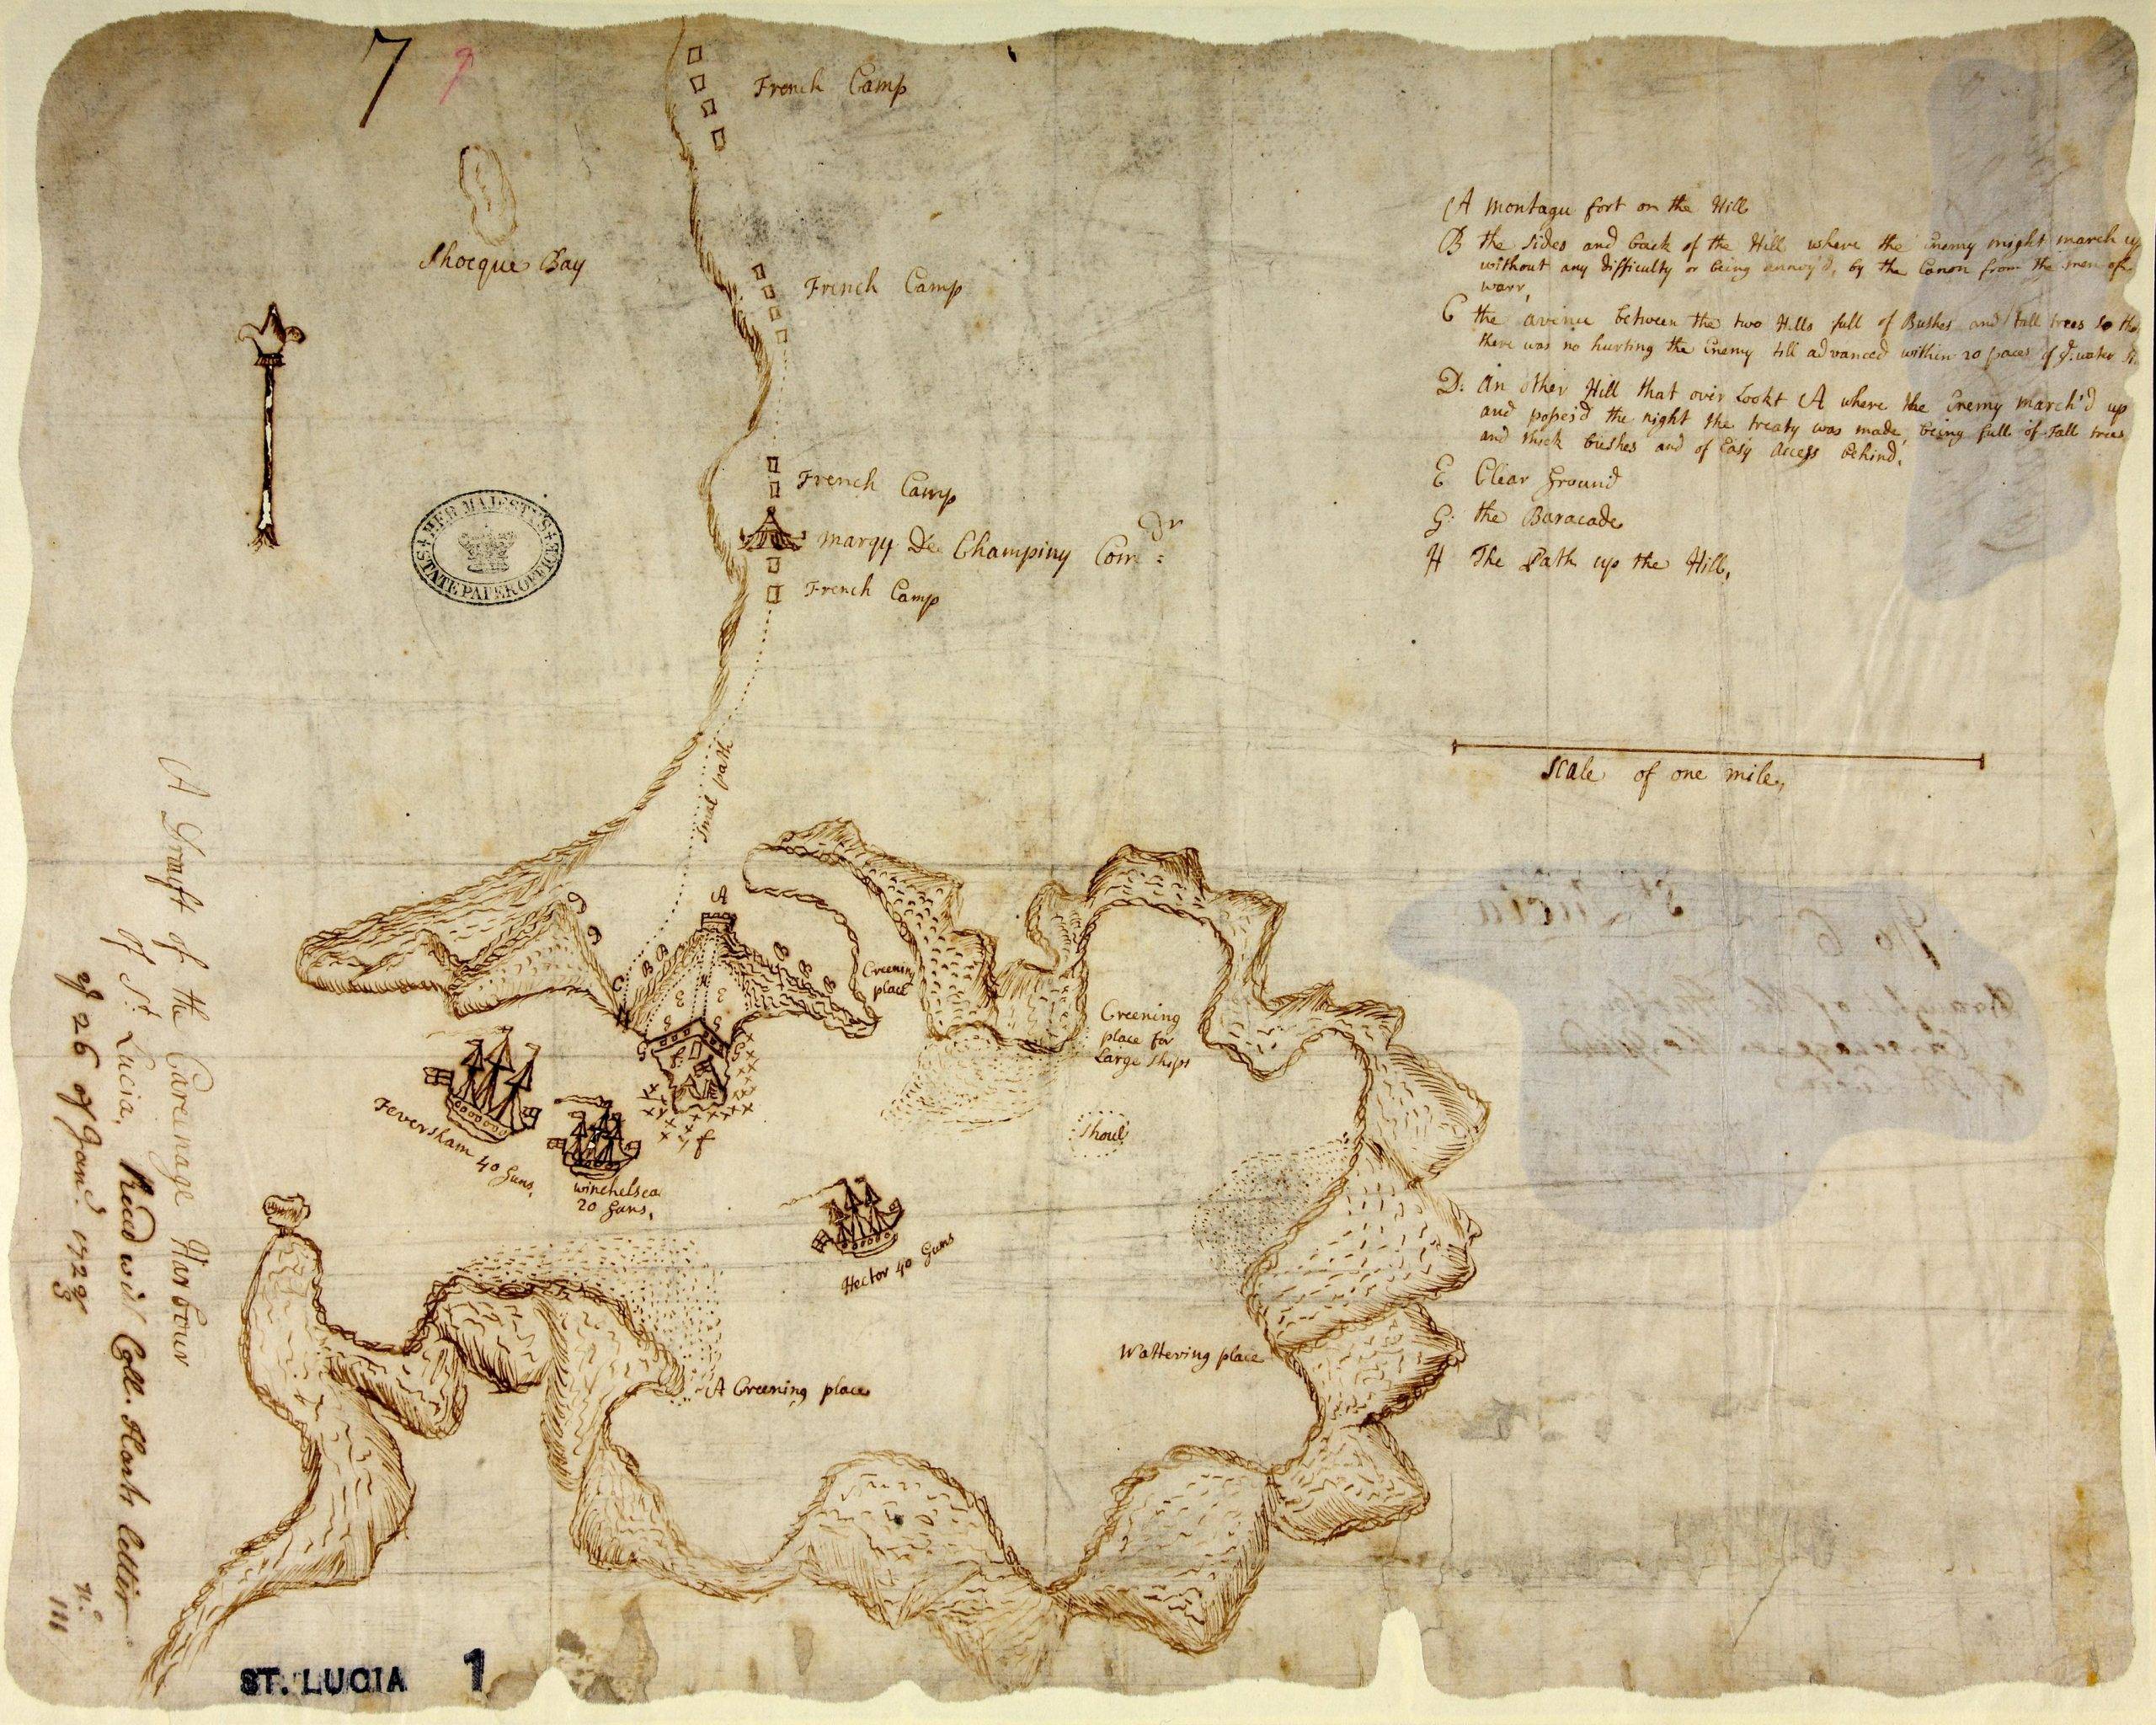 7 9
French Camp
Shocque Bay
French Camp
French Camp
Marqy De Champiny Comdr:
French Camp
HER MAJESTY'S
STATE PAPER OFFICE
A Montagu fort on the Hill
B the sides and back of the Hill where the Enemy might march up
without any difficulty or being annoy'd, by the Canon from the men of
warr,
C the avenue between the two Hills full of Bushes and tall trees so tha
there was no hurting the Enemy till advanced within 20 paces of ye. water
D: An other Hill that over Lookt A where the Enemy march'd up
and posses'd the night the treaty was made, being full of Tall trees
and thick bushes and of Easy Access behind,
E Clear Ground
G: the Baracade
H The Path up the Hill,
Scale of one mile,
Smal path
A
D
D
C B B
E E E E
E H E
G G
G G
f
f
Creening
place
Creening
place for
Large Ships
Shoul
Feversham 40 Guns,
Winchelsea
20 Guns,
Hector 40 Guns
Wattering place
A Creening place
A Draift of the Careenage Harbour
of St. Lucia,
Reced wth Coll. Harts letter
of 26 of Jany. 1722/3
No.
111
St. Lucia
No 6
ST. LUCIA 1